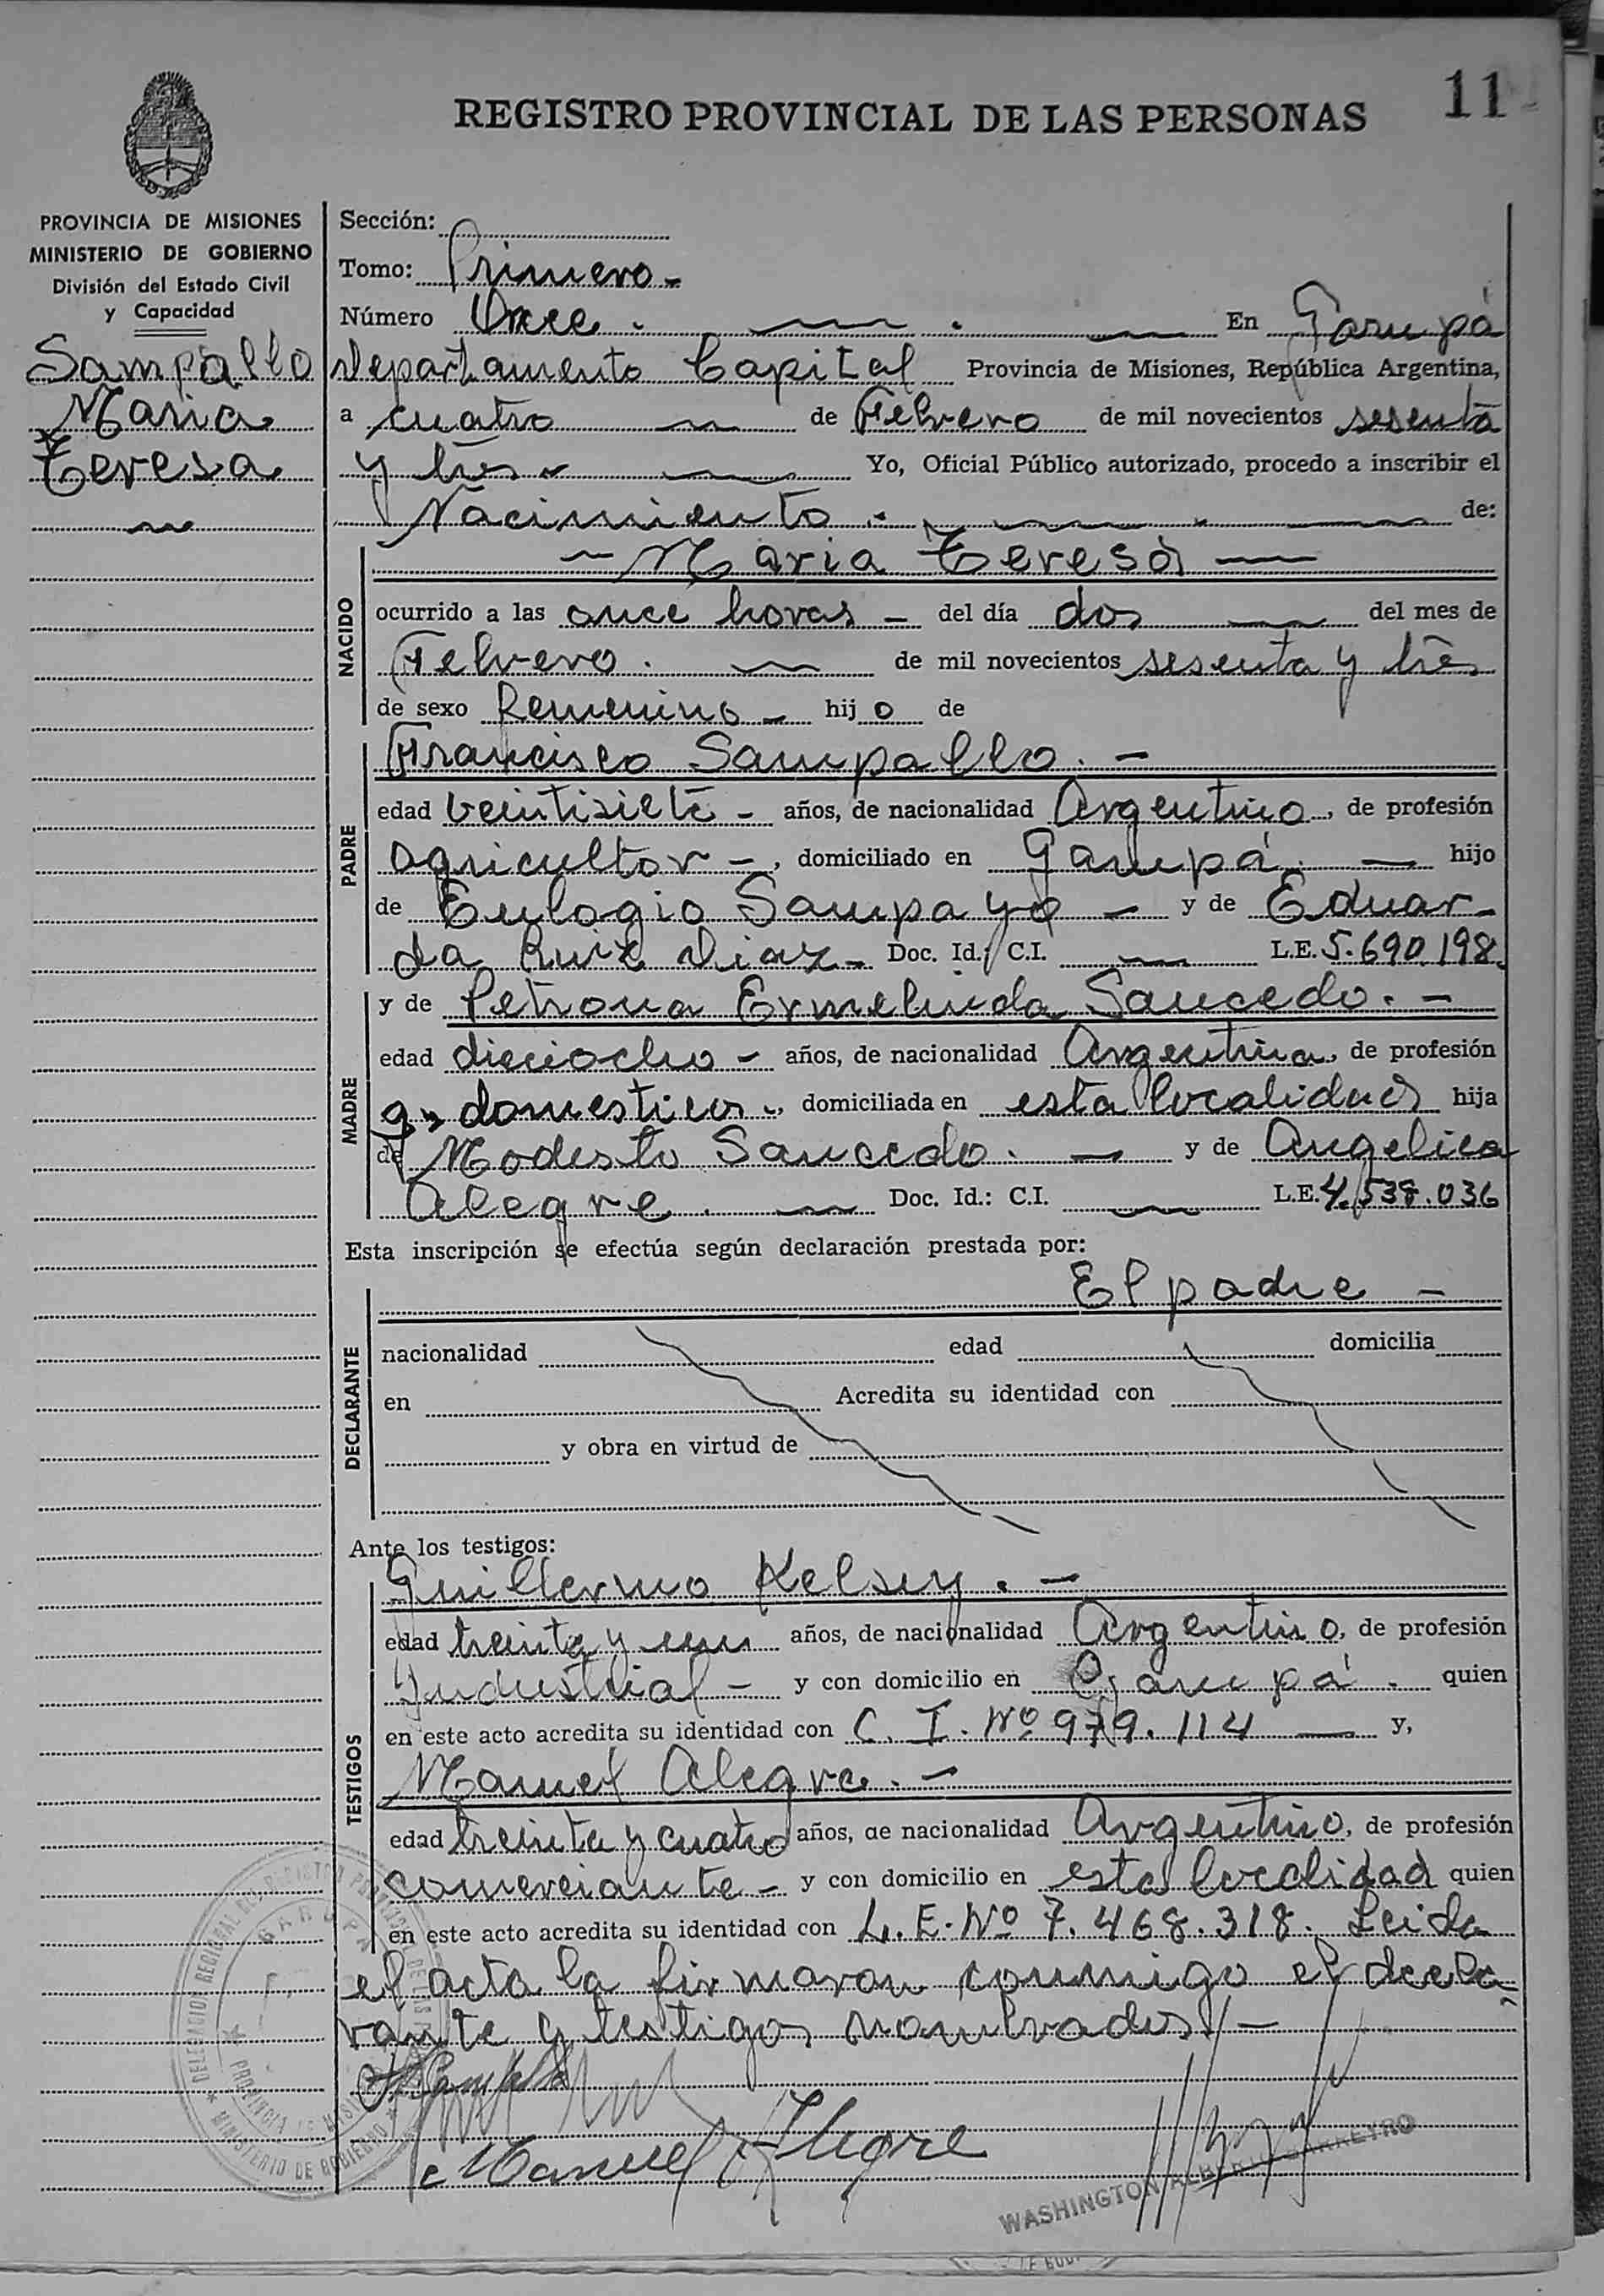 11
REGISTRO PROVINCIAL DE LAS PERSONAS
PROVINCIA DE MISIONES
MINISTERIO DE GOBIERNO
División del Estado Civil
y Capacidad
Sampallo
Maria
Teresa
Sección:
Tomo: Primero -
Número Once. En Garupá
departamento Capital Provincia de Misiones, República Argentina,
a cuatro de Febrero de mil novecientos sesenta
y tres Yo, Oficial Público autorizado, procedo a inscribir el
Nacimiento de:
NACIDO
Maria Teresa
ocurrido a las once horas - del día dos del mes de
Febrero. de mil novecientos sesenta y tres
de sexo Femenino - hij o de
PADRE
Francisco Sampallo. -
edad veintisiete - años, de nacionalidad Argentino, de profesión
agricultor -, domiciliado en Garupá. hijo
de Eulogio Sampayo - y de Eduar-
da Ruiz Diaz - Doc. Id.: C.I. L.E. 5.690.198.
MADRE
y de Petrona Ermelinda Saucedo. -
edad dieciocho - años, de nacionalidad Argentina, de profesión
q, domesticos, domiciliada en esta localidad hija
de Modesto Saucedo. y de Angelica
Alegre. Doc. Id.: C.I. L.E. 4.538.036
Esta inscripción se efectúa según declaración prestada por:
DECLARANTE
El padre -
nacionalidad edad domicilia
en Acredita su identidad con
y obra en virtud de
Ante los testigos:
TESTIGOS
Guillermo Kelsey. -
edad treinta y un años, de nacionalidad Argentino, de profesión
Industrial - y con domicilio en Garupá. quien
en este acto acredita su identidad con C. I. Nº 979.114 y,
Manuel Alegre. -
edad treinta y cuatro años, de nacionalidad Argentino, de profesión
comerciante - y con domicilio en esta localidad quien
en este acto acredita su identidad con L. E. Nº 7.468.318. Leida
el acta la firmaron conmigo el decla-
rante y testigos nombrados. -
Manuel Alegre
WASHINGTON ALBERTO BARREYRO
DELEGACION REGIONAL DEL REGISTRO PROVINCIAL DE LAS
GARUPA
PROVINCIA DE MISIONES
MINISTERIO DE GOBIERNO